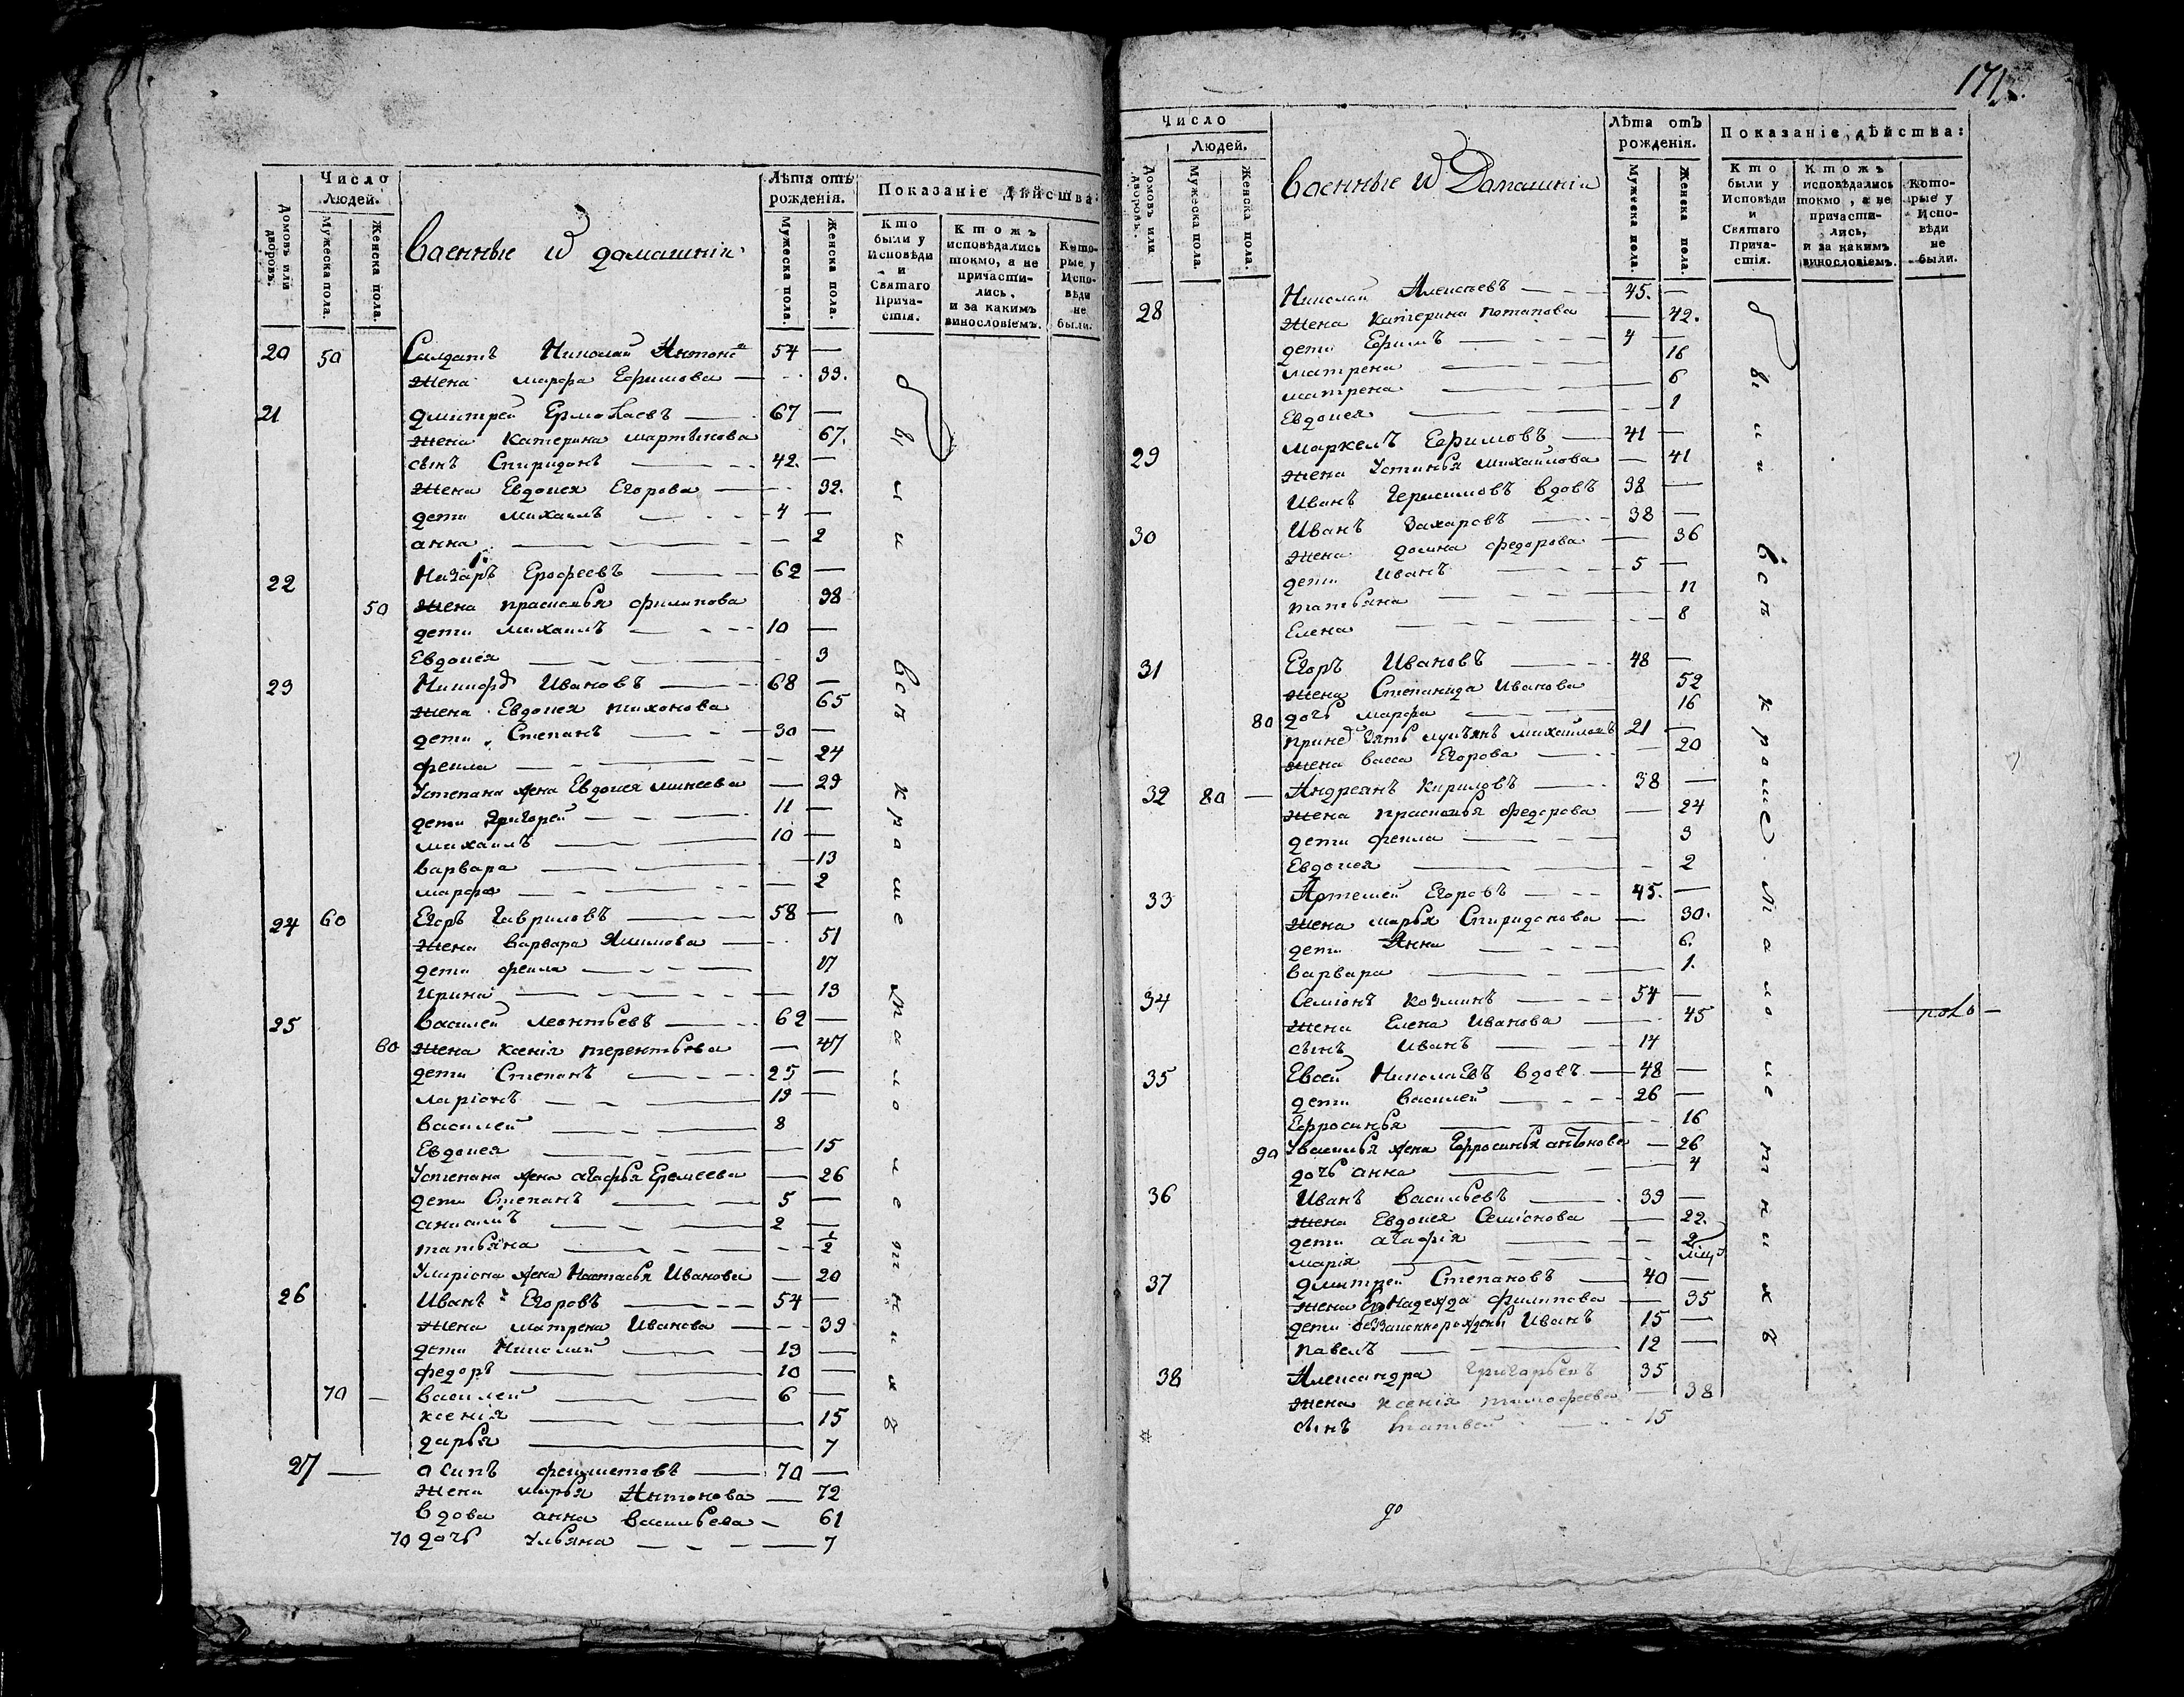 Число
Людей.
Домовъ или дворовъ.
Мужеска пола.
Женска пола.
военные и домашнiи
Лѣта отъ рожденія.
Мужеска пола.
Женска пола.
Показаніе дѣйства:
Кто были у Исповѣди и Святаго Прича-стія.
Ктожъ исповѣдались токмо, а не причасти-лись, и за какимъ винословіемъ.
Кото-рые у Испо-вѣди не были.
20 50 Салдатъ Николай Антоно 54 —
жена марфа Ефимова — 33.
21 дмитрей Ермолаевъ — 67 —
жена катерина мартынова 67.
сынъ Спиридонъ — 42. —
жена Евдокея Егорова — 32.
дети михаилъ — 4 —
анна — 2
22 Назаръ Ерофеевъ — 62 —
50 жена прасковья филипова 38
дети михаилъ — 10 —
Евдокея — 3
23 Никифоръ Ивановъ — 68 —
жена Евдокея тихонова 65
дети Степанъ — 30 —
фекла — 24
Устепана жена Евдокея минеева — 29
дети григорей — 11 —
михаилъ — 10 —
варвара — 13
марфа — 2
24 60 Егоръ Гавриловъ — 58 —
жена варвара Якимова — 51
дети фекла — 17
ирина — 13
25 василей леонтьевъ — 62 —
60 жена ксенiя терентьева — 47
дети Степанъ — 25 —
ларiонъ — 19 —
василей — 8
Евдокея — 15
Устепана жена агафья Еремеева — 26
дети Степанъ — 5 —
— 2 —
татьяна — 1/2
Уларiона жена Настасья Иванова — 20
26 Иванъ Егоровъ — 54 —
жена матрена Иванова — 39
дети Николай — 19 —
федоръ — 10 —
70 — василей — 6 —
ксенiя — 15
дарья — 7
27 — осипъ — 70 —
жена марья Антонова — 72
вдова анна васильева — 61
70 дочь Ульяна — 7
были
всѣ
кроме
малолетныхъ
171.
Число
Людей.
Домовъ или дворовъ.
Мужеска пола.
Женска пола.
военные и Домашнiи
Лѣта отъ рожденія.
Мужеска пола.
Женска пола.
Показаніе дѣйства:
Кто были у Исповѣди и Святаго Прича-стія.
Ктожъ исповѣдались токмо, а не причасти-лись, и за какимъ винословіемъ.
Кото-рые у Испо-вѣди не были.
28 Николай Алексеевъ — 45. —
жена катерина потапова — 42.
дети Ефимъ — 4 —
матрена — 16
матрена — 6
Евдокея — 1
29 маркелъ Ефимовъ — 41 —
жена Устинья михаилова — 41
Иванъ Герасимовъ вдовъ 38 —
30 Иванъ Захаровъ — 38 —
жена домна федорова — 36
дети Иванъ — 5 —
татьяна — 11
Елена — 8
31 Егоръ Ивановъ — 48 —
жена Степанида Иванова 52
80 дочь марфа — 16
зять михайловъ 21 —
жена васса Егорова — 20
32 80 — Андреянъ кириловъ — 38 —
жена прасковья федорова — 24
дети фекла — 3
Евдокея — 2
33 Артемей Егоровъ — 45. —
жена марья Спиридонова — 30.
дети Анна — 6.
варвара — 1.
34 Семіонъ козминъ — 54 —
жена Елена Иванова — 45
сынъ Иванъ — 14
35 Евсей Николаевъ вдовъ — 48 —
дети василей — 26 —
Ефросинья — 16
90 Увасилья жена Ефросинья антонова — 26
дочь анна — 4
36 Иванъ васильевъ — 39 —
жена Евдокея Семіонова — 22.
дети агафiя — 2
марiя —
37 дмитрей Степановъ — 40 —
жена Надежда филипова — 35
дети беззаконнорожденой Иванъ 15 —
павелъ — 12 —
38 Александра Григорьевъ 35
жена ксенiя тимофеева — 38
сынъ матвей — 15
были
всѣ
кроме
малолетныхъ
до